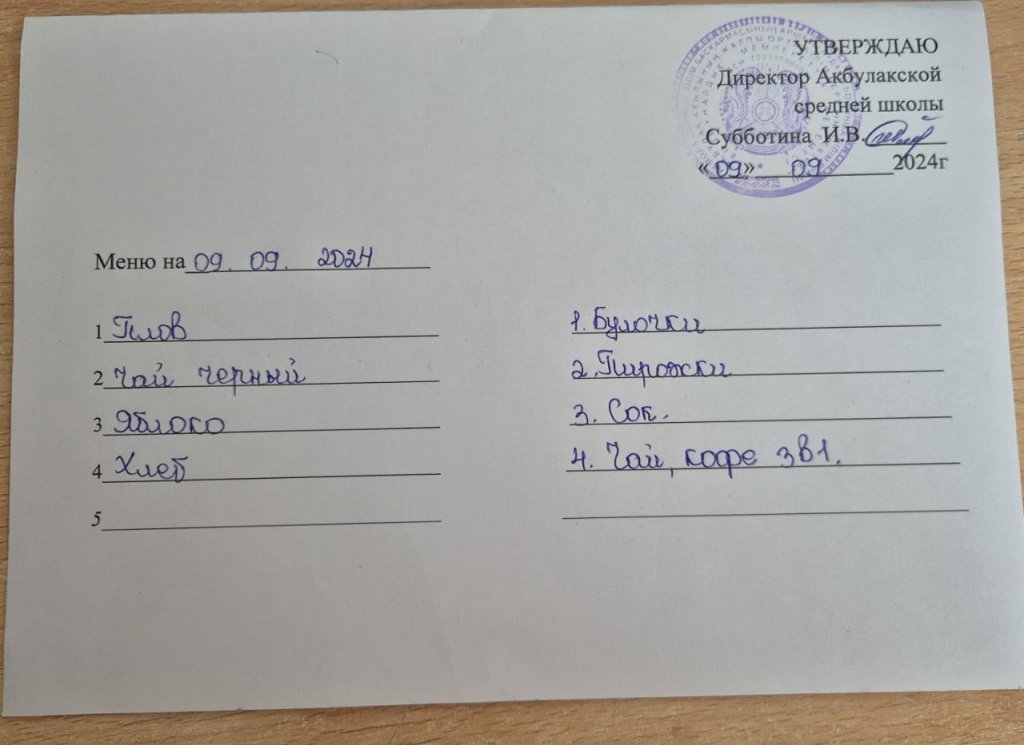 УТВЕРЖДАЮ
Директор Акбулакской
средней школы
Субботина И.В.
«09» 09 2024г
Меню на 09. 09. 2024
1 Плов
2 Чай черный
3 Яблоко
4 Хлеб
5
1. Булочки
2. Пирожки
3. Сок.
4. Чай, кофе 3в1.